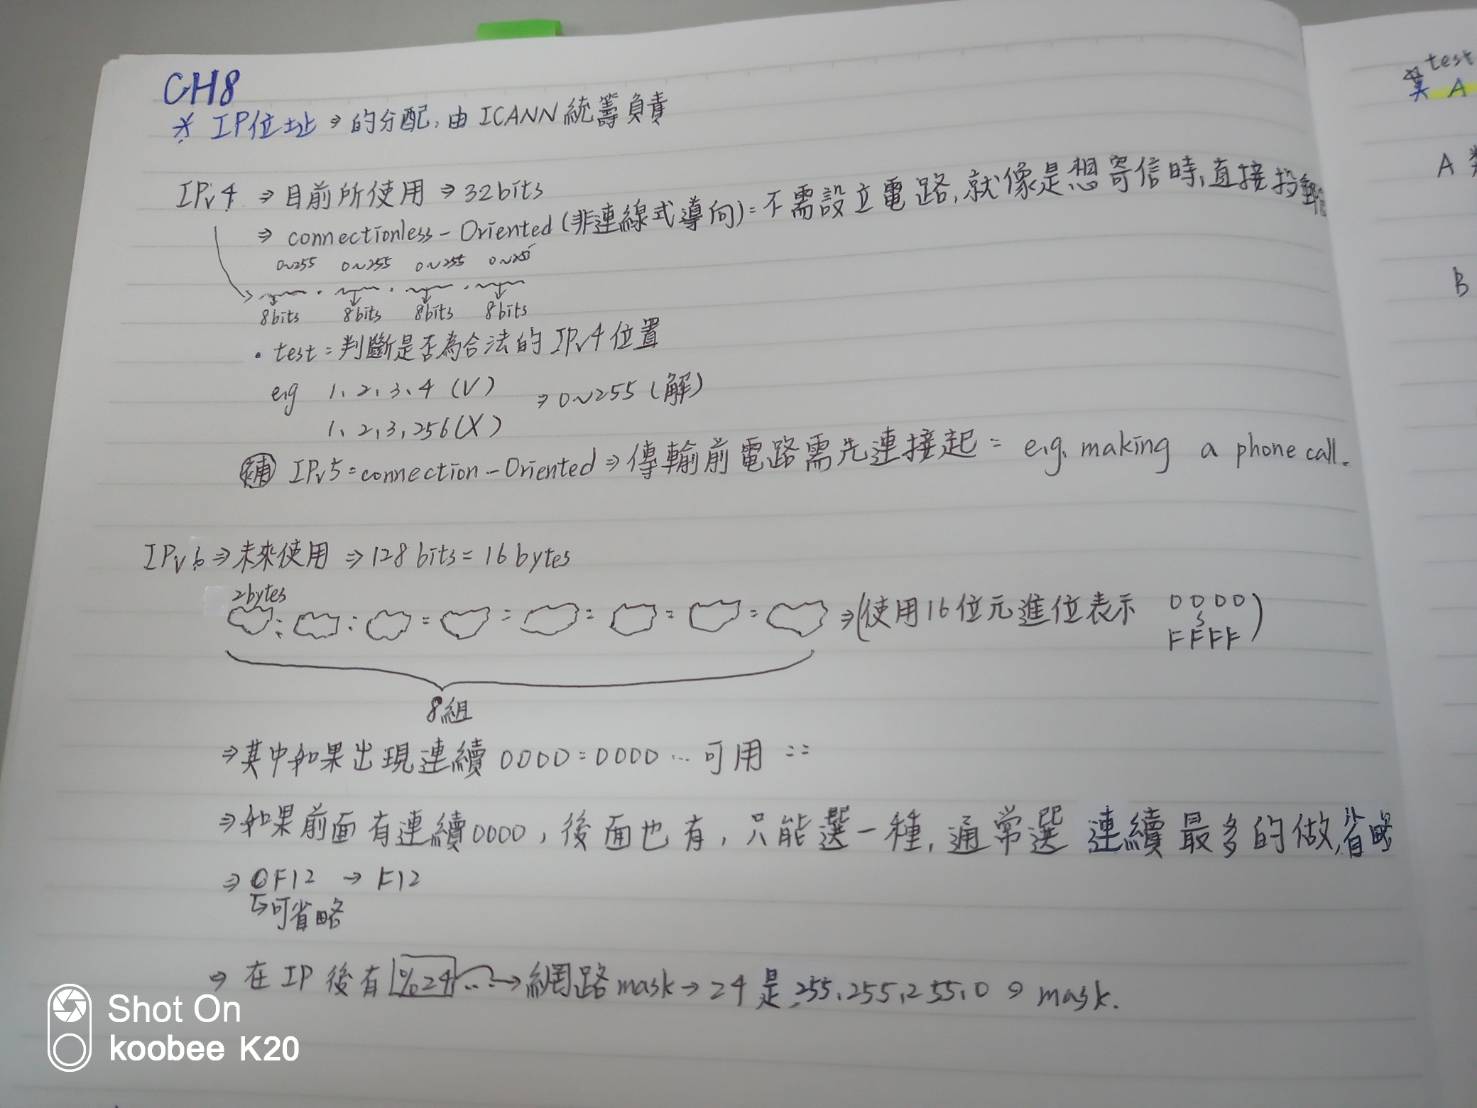 CH8
* IP位址 → 的分配, 由 ICANN 統籌負責
IPv4 ⇒ 目前所使用 ⇒ 32bits
⇒ connectionless - Oriented (非連線式導向) = 不需設立電路, 就像是想寄信時, 直接投郵筒
0~255 0~255 0~255 0~255
8bits 8bits 8bits 8bits
• test = 判斷是否為合法的 IPv4 位置
e.g 1. 2. 3. 4 (V) ⇒ 0~255 (解)
1. 2. 3. 256 (X)
補 IPv5 = connection - Oriented ⇒ 傳輸前電路需先連接起 = e.g. making a phone call.
IPv6 ⇒ 未來使用 ⇒ 128 bits = 16 bytes
2bytes
: : : : : : : ⇒ (使用16位元進位表示 0000 ~ FFFF)
8組
⇒ 其中如果出現連續 0000:0000 … 可用 ::
⇒ 如果前面有連續0000, 後面也有, 只能選一種, 通常選 連續最多的做省略
⇒ 0F12 → F12
↳可省略
⇒ 在 IP 後有 %24 … → 網路 mask → 24 是 255.255.255.0 mask.
test
A
A
B
Shot On
koobee K20